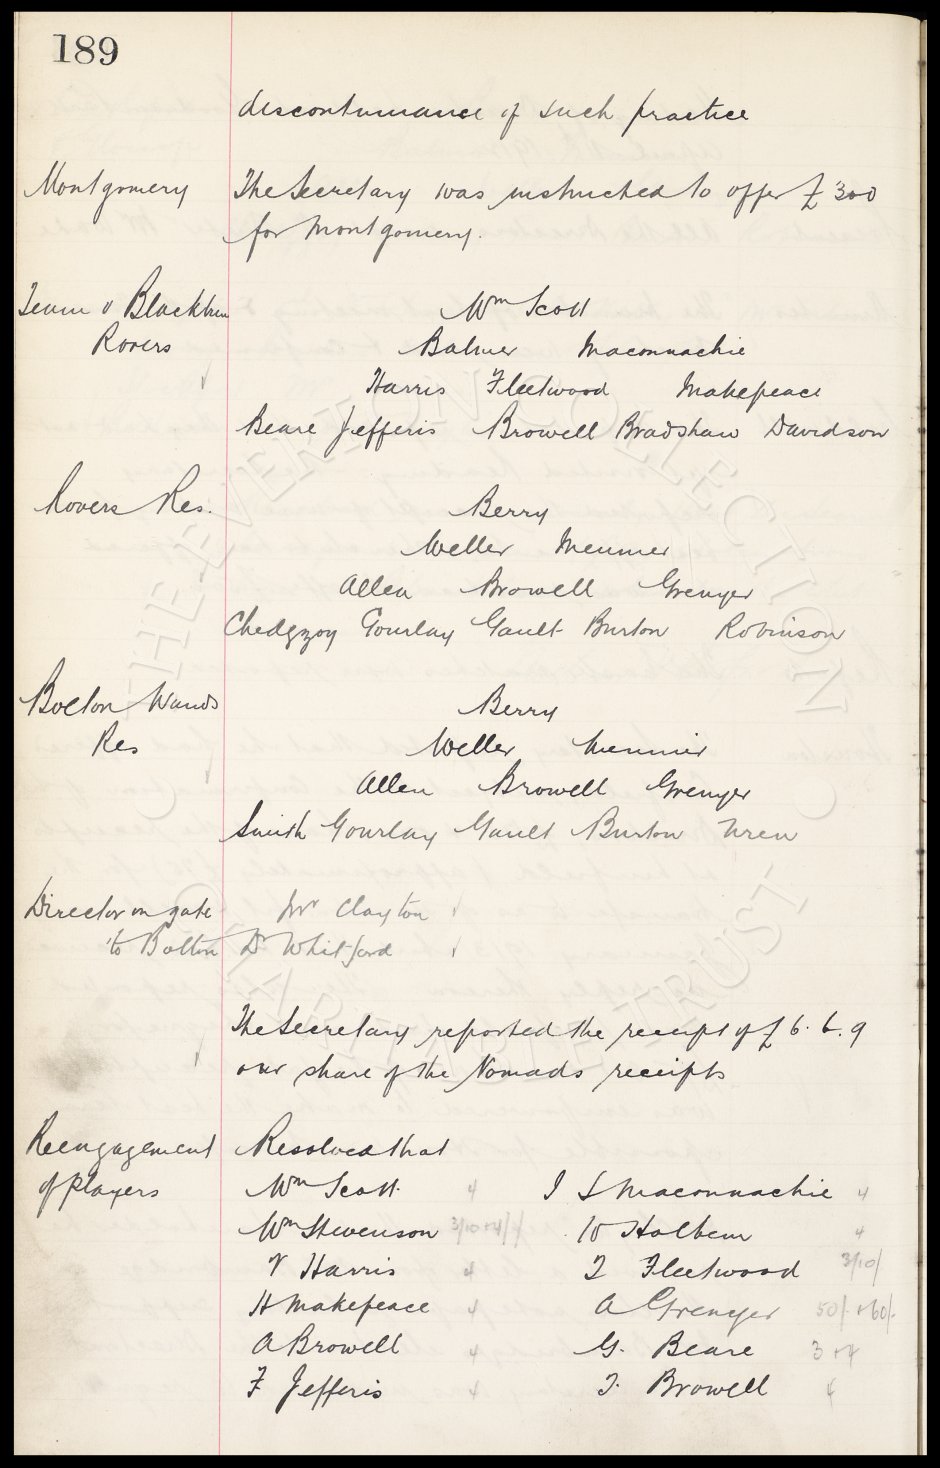 189
discontinuance of such practice
Montgomery The Secretary was instructed to offer £300
for Montgomery.
Team v Blackburn Wm Scott
Rovers Balmer Maconnachie
Harris Fleetwood Makepeace
Beare Jefferis Browell Bradshaw Davidson
Rovers Res. Berry
Weller Meunier
Allen Browell Grenyer
Chedgzoy Gourlay Gault Burton Robinson
Bolton Wands Berry
Res Weller Meunier
Allen Browell Grenyer
Smith Gourlay Gault Burton Wren
Director on gate Mr Clayton
to Bolton Dr Whitford
The Secretary reported the receipt of £6.6.9
our share of the Nomads receipts
Reengagement Resolved that
of Players Wm Scott 4 J S Maconnachie 4
Wm Stevenson 3/10+4/ W Holbem 4
V Harris 4 T Fleetwood 3/10/
H Makepeace 4 A Grenyer 50/- +60/-
A Browell 4 G. Beare 3+4
F Jefferis 4 T. Browell 4
THE EVERTON COLLECTION
CHARITABLE TRUST